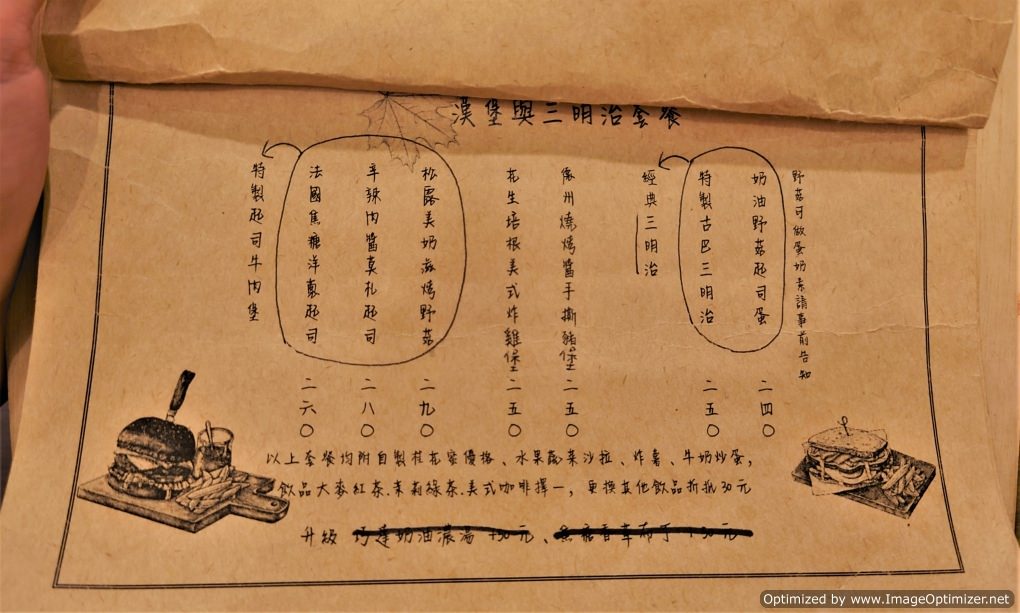 漢堡與三明治套餐
野菇可做蛋奶素請事前告知
奶油野菇起司蛋 二四〇
特製古巴三明治 二五〇
經典三明治
德州燒烤醬手撕豬堡 二五〇
花生培根美式炸雞堡 二五〇
松露美奶滋烤野菇 二九〇
辛辣肉醬莫札起司 二八〇
法國焦糖洋蔥起司 二六〇
特製起司牛肉堡
以上套餐均附自製桂花蜜優格、水果蔬菜沙拉、炸薯、牛奶炒蛋,
飲品大麥紅茶.茉莉綠茶.美式咖啡擇一,更換其他飲品折抵30元
升級 巧達奶油濃湯 +50元、焦糖香草布丁 +50元
Optimized by www.ImageOptimizer.net